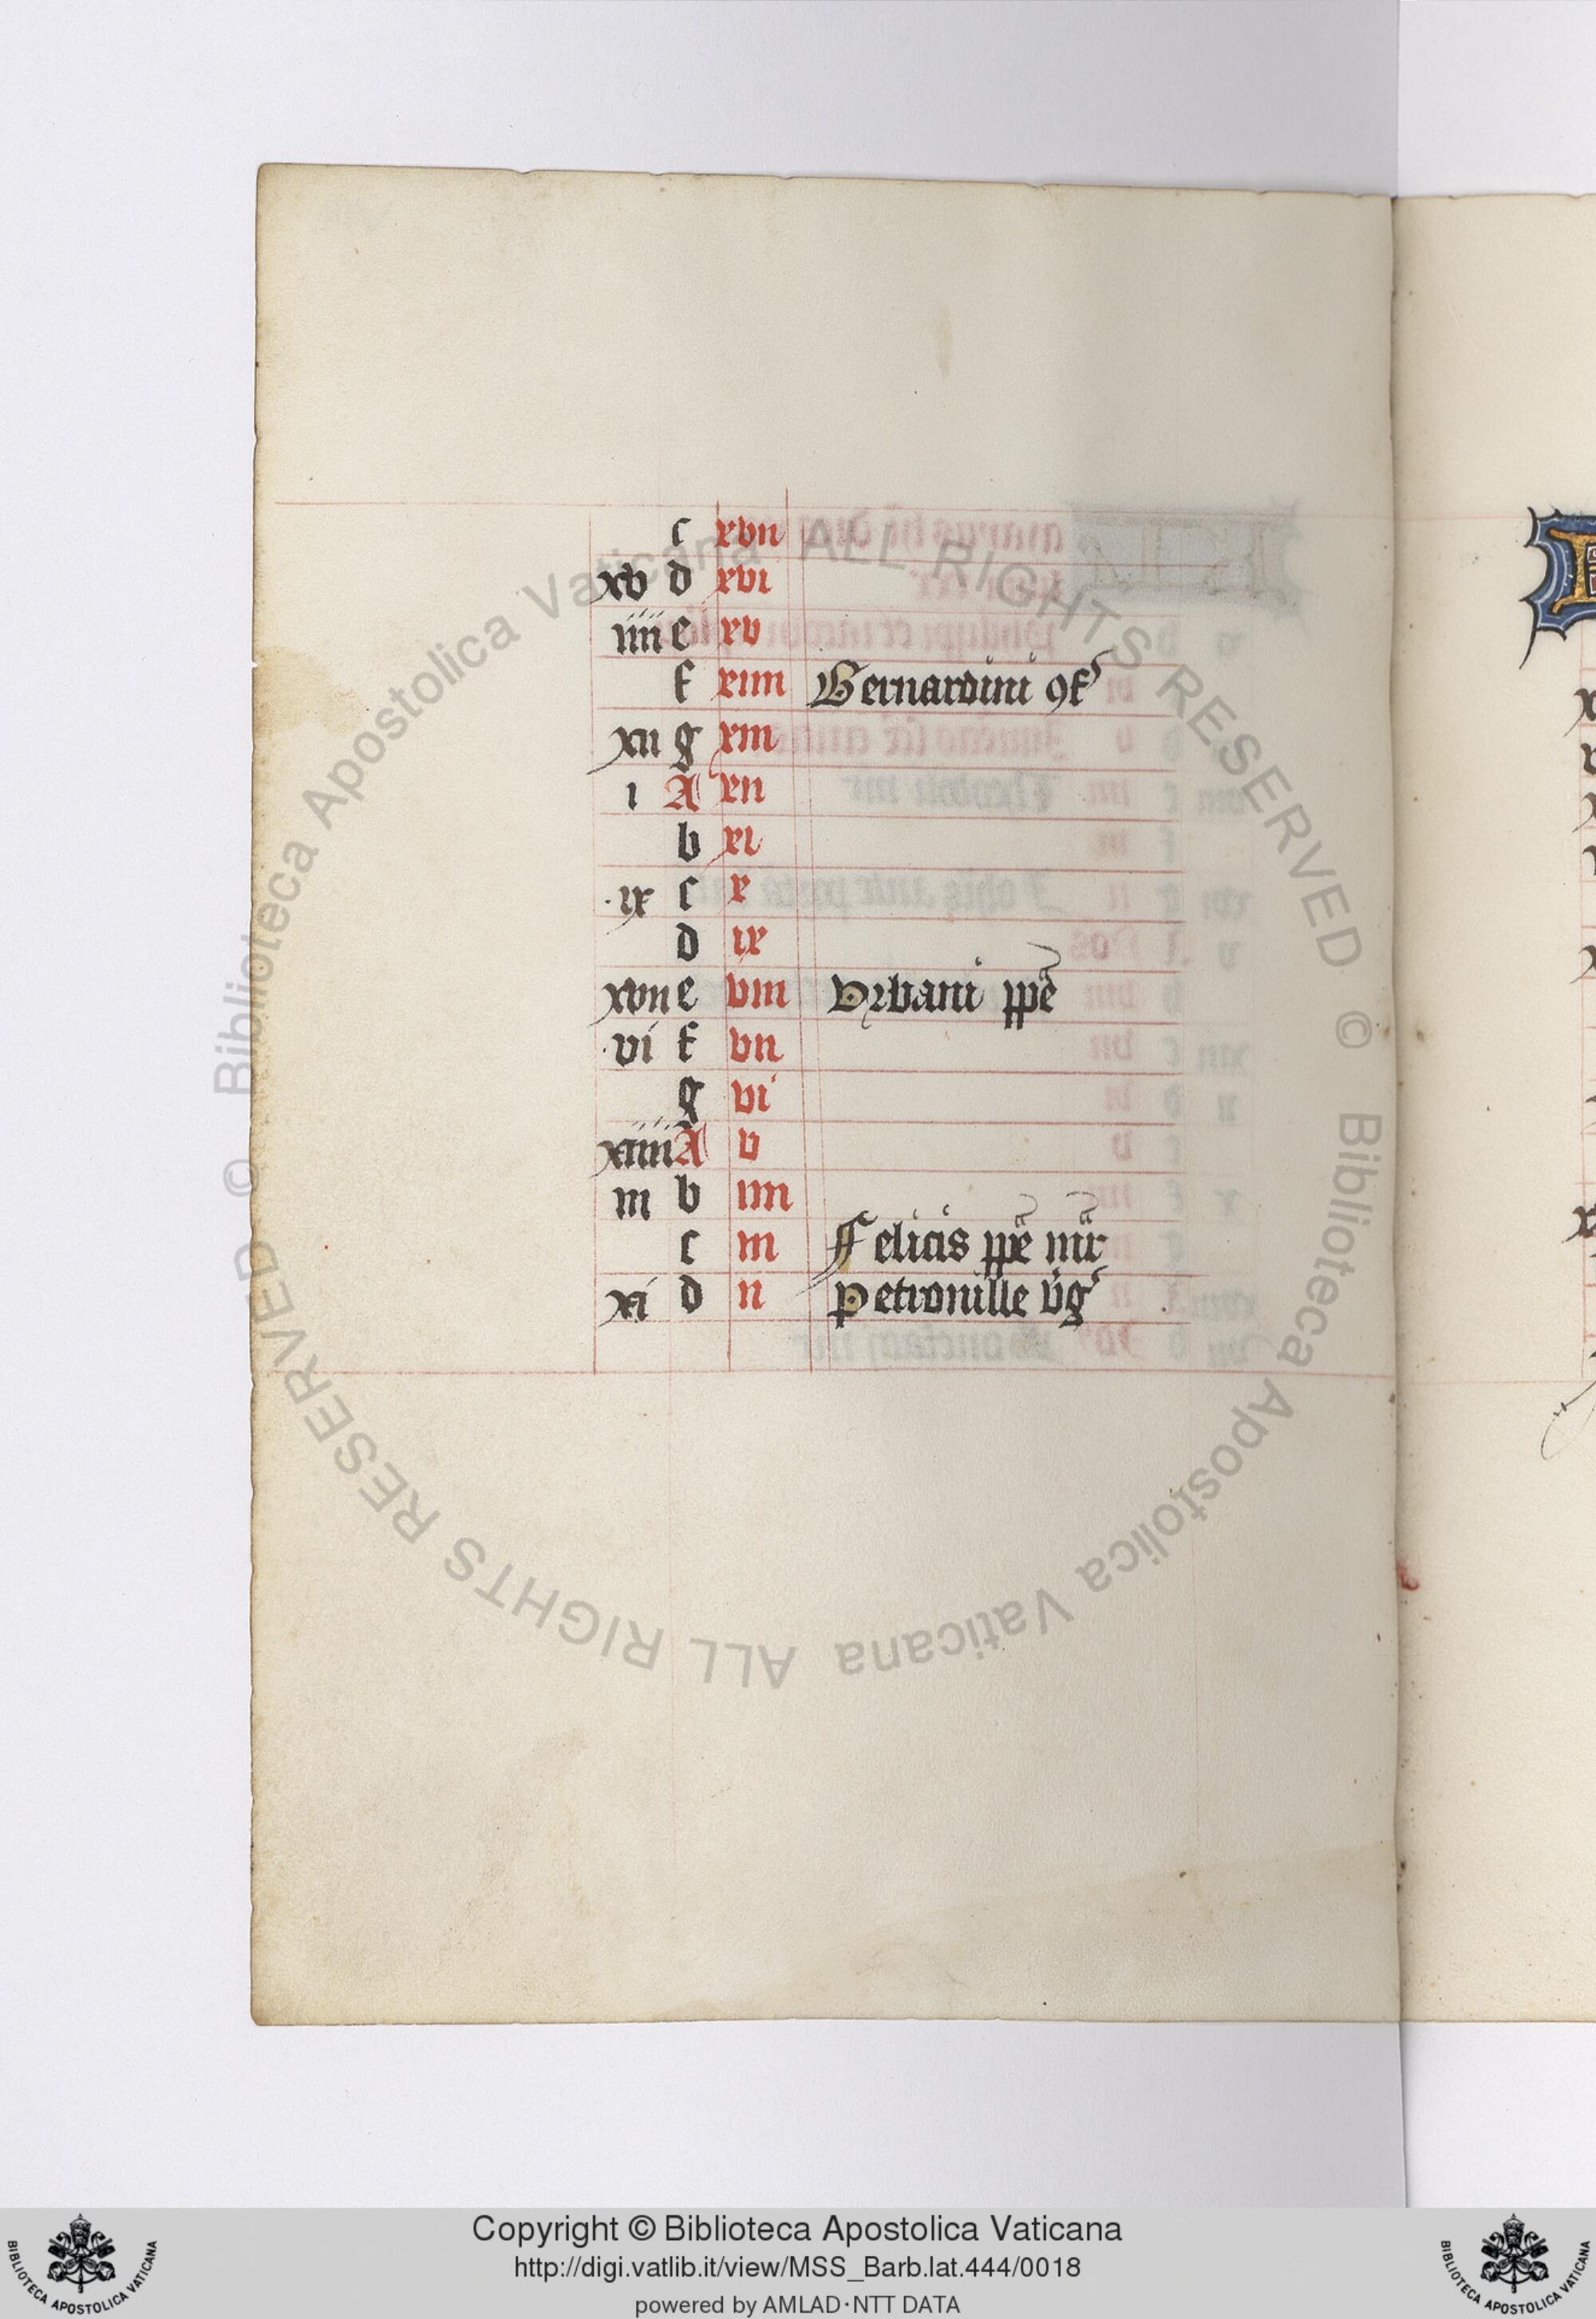 c xvii
xv d xvi
iiii e xv
f xiiii Bernardini 9f
xii g xiii
i A xii
b xi
ix c x
d ix
xvii e viii Urbani ppe
vi f vii
g vi
xiiii A v
iii b iiii
c iii Felicis ppe mr
xi d ii Petronille vg
© Biblioteca Apostolica Vaticana ALL RIGHTS RESERVED
© Biblioteca Apostolica Vaticana ALL RIGHTS RESERVED
BIBLIOTECA APOSTOLICA VATICANA
Copyright © Biblioteca Apostolica Vaticana
http://digi.vatlib.it/view/MSS_Barb.lat.444/0018
powered by AMLAD·NTT DATA
BIBLIOTECA APOSTOLICA VATICANA